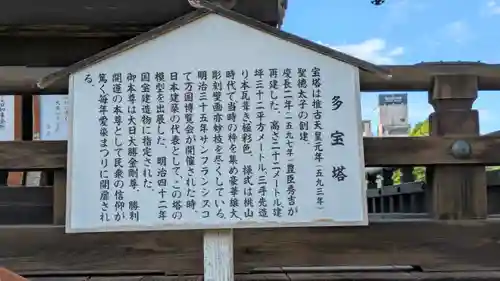 多宝塔
宝塔は推古天皇元年(五九三年)
聖徳太子の創建、
慶長二年(一五九七年)豊臣秀吉が
再建した。高さ二十二メートル建
坪三十二平方メートル、三手先造
り本瓦葺き極彩色、様式は桃山
時代で当時の粋を集め豪華雄大、
彫刻壁画亦妙技を尽くしている。
明治三十五年サンフランシスコ
で万国博覧会が開催された時、
日本建築の代表として、この塔の
模型を出展した。明治四十二年
国宝建造物に指定された。
御本尊は大日大勝金剛尊。勝利
開運の本尊として民衆の信仰が
篤く毎年愛染まつりに開扉され
る。